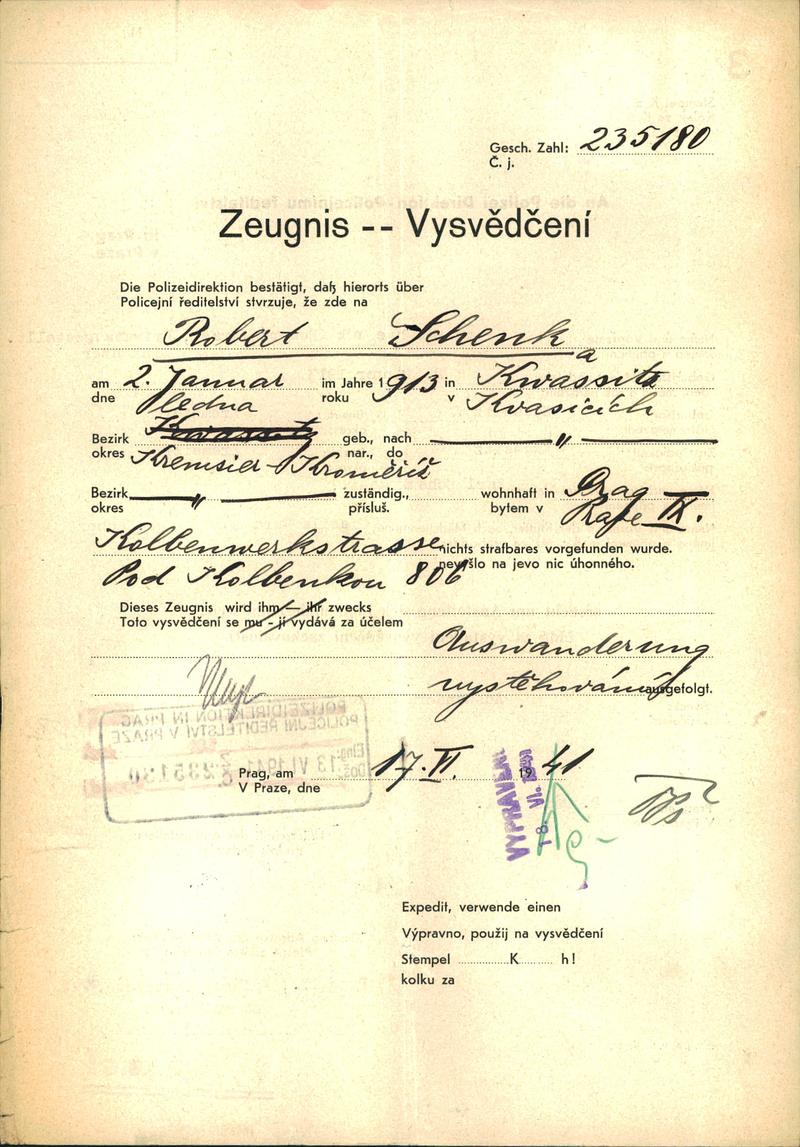 Gesch. Zahl: 235180
Č. j.
Zeugnis -- Vysvědčení
Die Polizeidirektion bestätigt, daß hierorts über
Policejní ředitelství stvrzuje, že zde na
Robert Schenk
am 2. Januar im Jahre 1913 in Kwassitz
dne ledna roku v Kvasicích
Bezirk Kwassitz geb., nach — " —
okres Kremsier - Kroměříž nar., do
Bezirk — " — zuständig., wohnhaft in Prag IX.
okres přísluš. bytem v Praze
Kolbenwerkstrasse nichts strafbares vorgefunden wurde.
Pod Kolbenkou 806 nevyšlo na jevo nic úhonného.
Dieses Zeugnis wird ihm — ihr zwecks
Toto vysvědčení se mu - jí vydává za účelem
Auswanderung
vystěhování ausgefolgt.
POLIZEIDIREKTION IN PRAG
POLICEJNÍ ŘEDITELSTVÍ V PRAZE
Eing. 13 VI. 1941
Došlo 235180
Prag, am 17. VI. 1941
V Praze, dne
VYPRAVENO
18. VI.
Expedit, verwende einen
Výpravno, použij na vysvědčení
Stempel K h!
kolku za